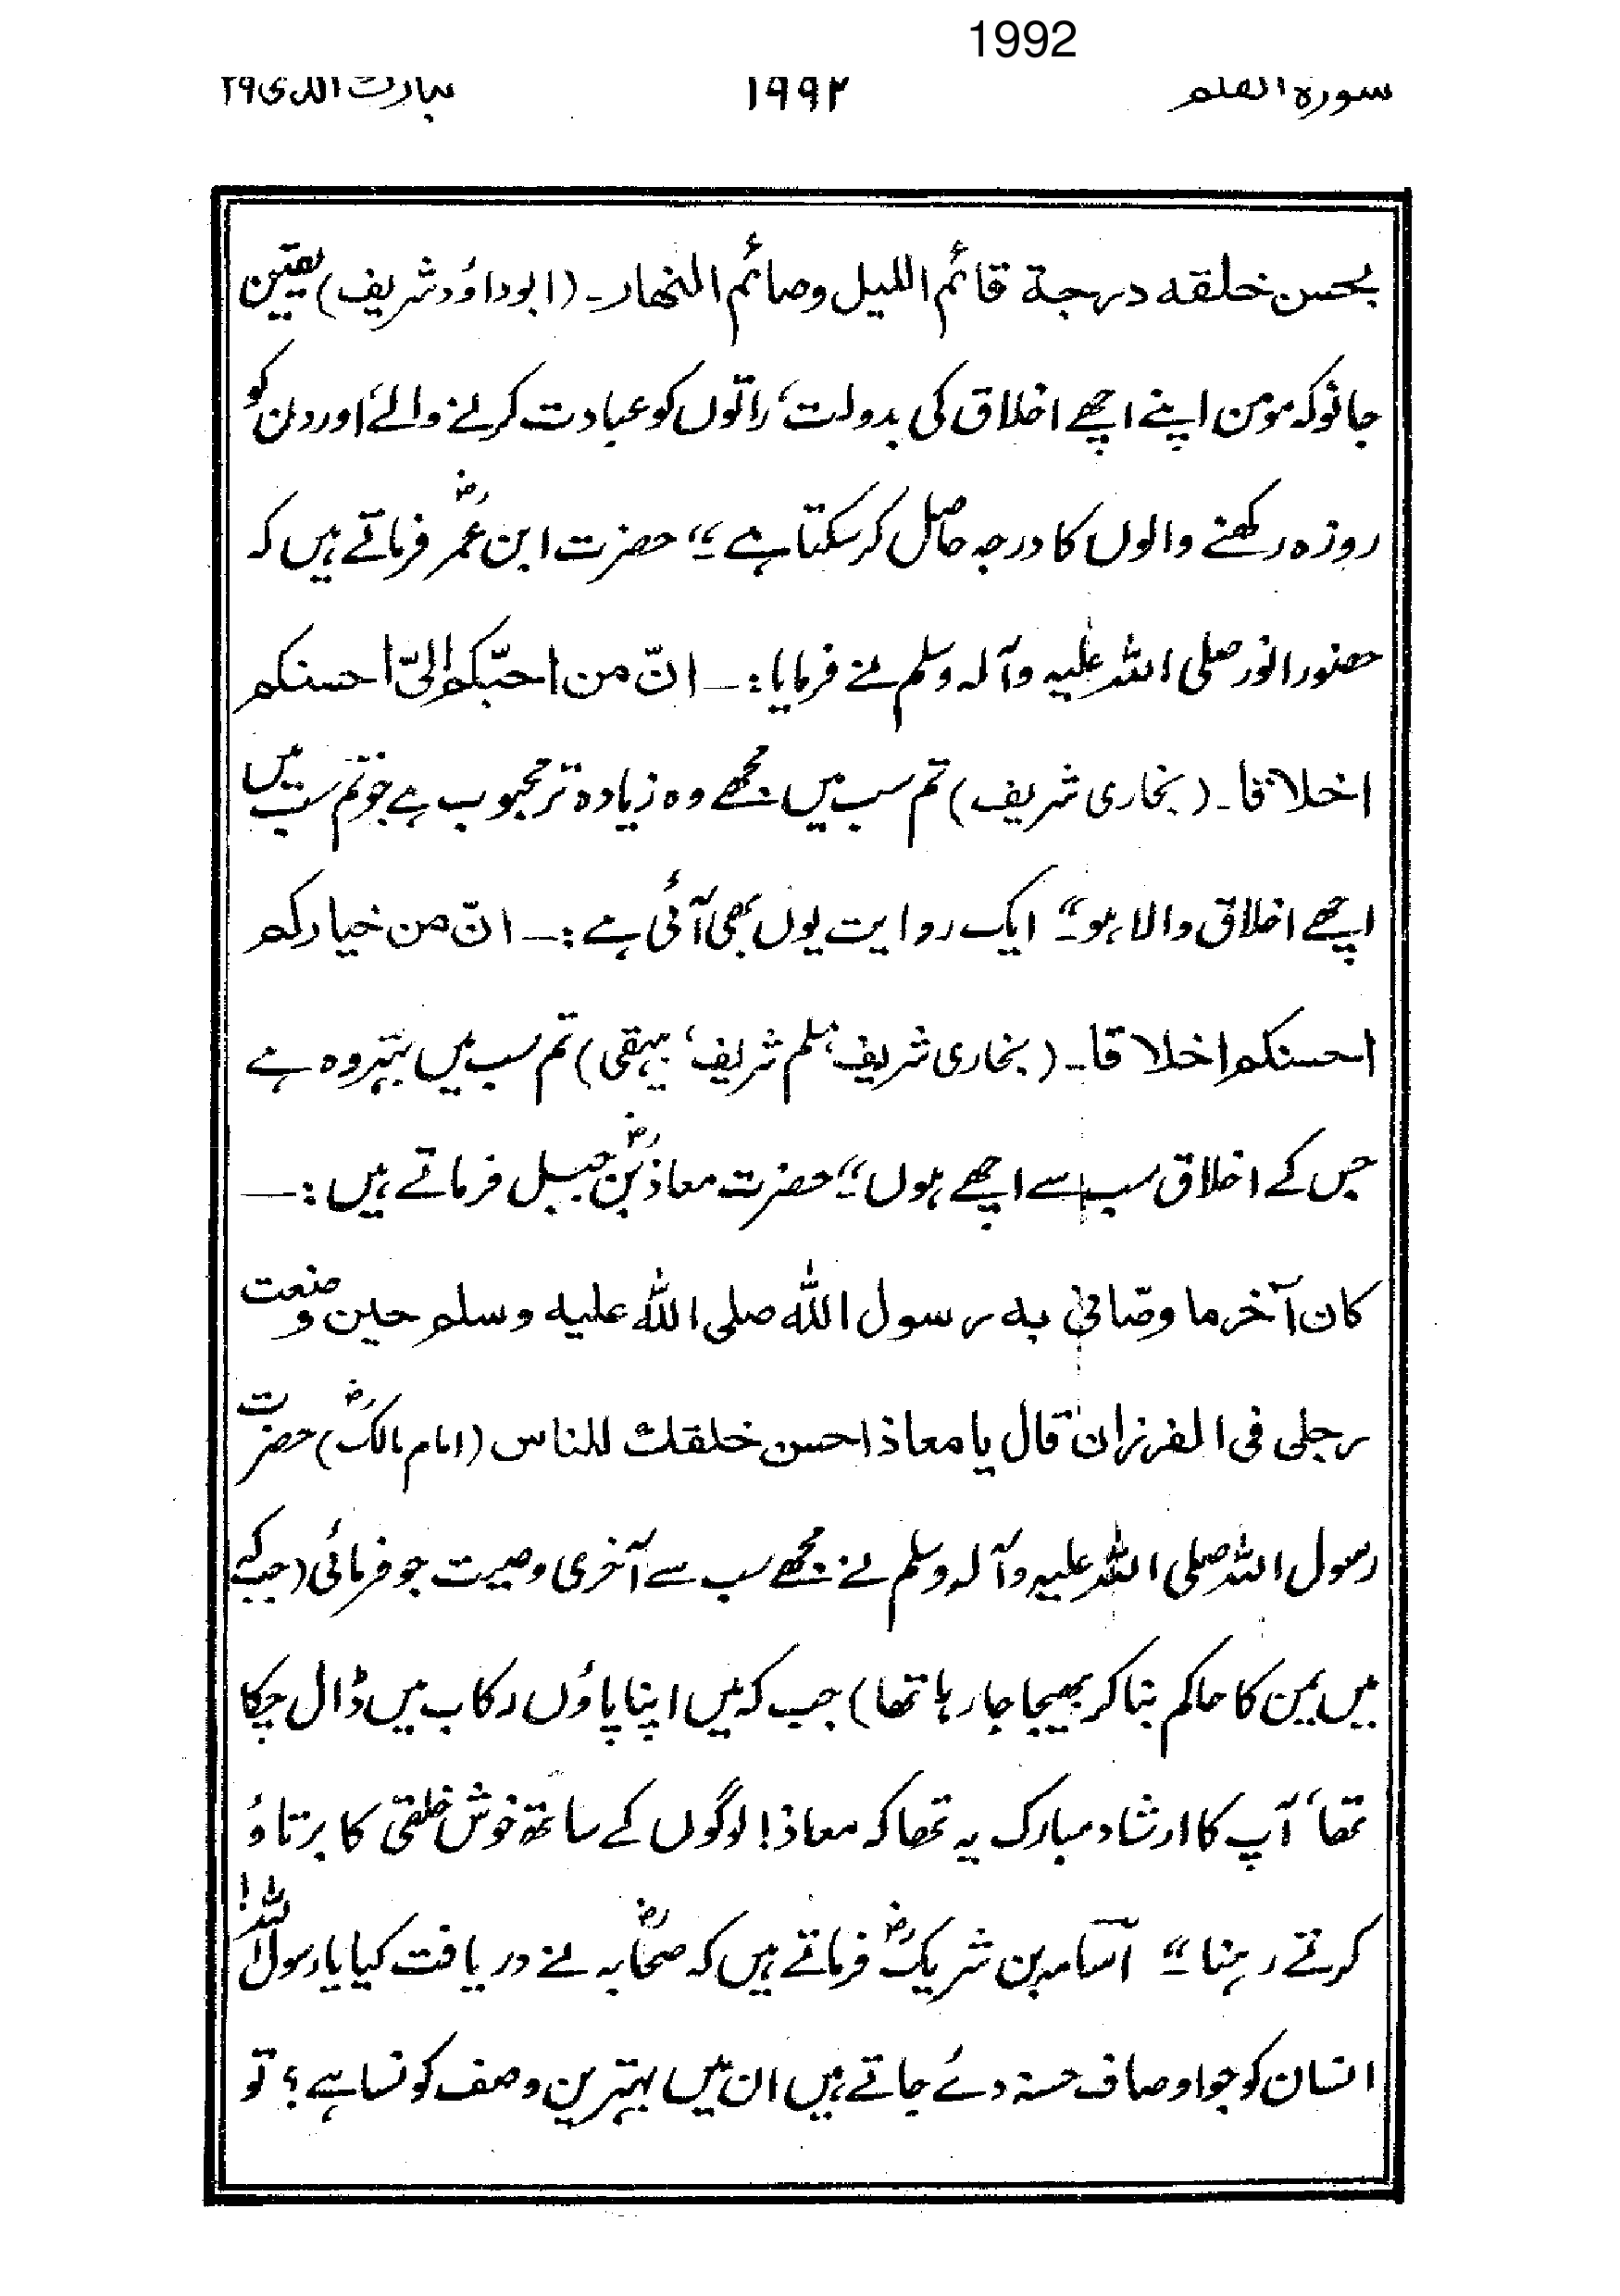 1992
سورہ القلم ۱۹۹۲ تبارک الذی ۲۹
بحسن خلقه درجة قائم الليل وصائم النهار۔ (ابوداؤد شریف) یقین
جانو کہ مومن اپنے اچھے اخلاق کی بدولت، راتوں کو عبادت کرنے والے، اور دن کو
روزہ رکھنے والوں کا درجہ حاصل کر سکتا ہے۔“ حضرت ابن عمرؓ فرماتے ہیں کہ
حضور انور صلی اللہ علیہ وآلہ وسلم نے فرمایا:۔ انّ من احبّكم الىّ احسنكم
اخلاقا۔ (بخاری شریف) تم سب میں مجھے وہ زیادہ تر محبوب ہے جو تم سب میں
اچھے اخلاق والا ہو۔“ ایک روایت یوں بھی آئی ہے:۔ انّ من خياركم
احسنكم اخلاقا۔ (بخاری شریف، مسلم شریف، بیہقی) تم سب میں بہتر وہ ہے
جس کے اخلاق سب سے اچھے ہوں۔“ حضرت معاذؓ بن جبل فرماتے ہیں:۔
كان آخر ما وصّانى به رسول الله صلى الله عليه وسلم حين وضعت
رجلى فى الغرزان قال يا معاذ احسن خلقك للناس (امام مالکؒ) حضرت
رسول اللہ صلی اللہ علیہ وآلہ وسلم نے مجھے سب سے آخری وصیت جو فرمائی (جبکہ
میں یمن کا حاکم بنا کر بھیجا جا رہا تھا) جب کہ میں اپنا پاؤں رکاب میں ڈال چکا
تھا، آپ کا ارشاد مبارک یہ تھا کہ معاذ! لوگوں کے ساتھ خوش خلقی کا برتاؤ
کرتے رہنا۔“ اسامہ بن شریکؓ فرماتے ہیں کہ صحابہؓ نے دریافت کیا یا رسول اللہ!
انسان کو جو اوصاف حسنہ دئے جاتے ہیں ان میں بہترین وصف کونسا ہے؟ تو